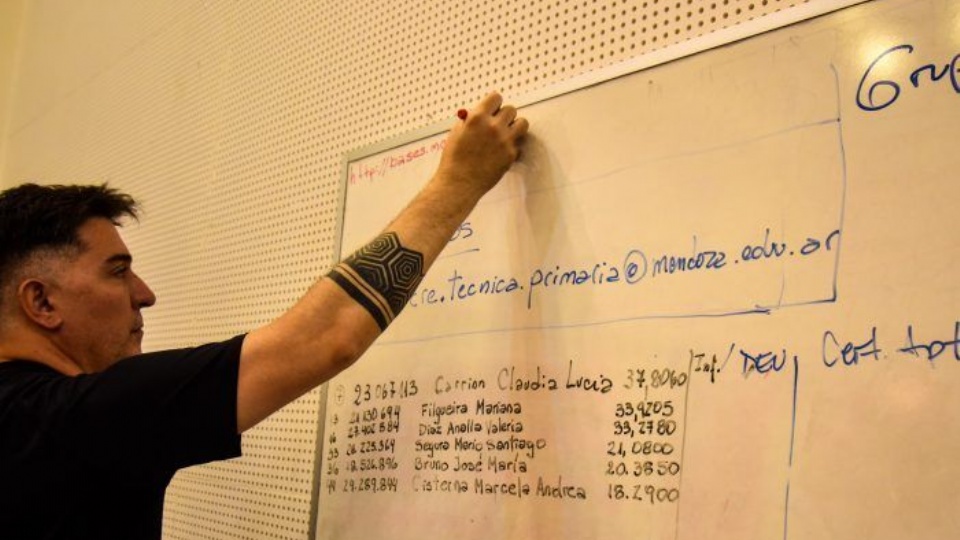 http://bases.mo
Grup
os
cre.tecnica.primaria@mendoza.edu.ar
Inf./ DEU, Cert. Apt
23 067113 Carrion Claudia Lucia 37,8060
Filgueira Mariana 33,9205
Diaz Analia Valeria 33,2780
Segura Mario Santiago 21,0800
36 18.526.896 Bruno José María 20.3850
44 24.289.844 Cisterna Marcela Andrea 18.2900